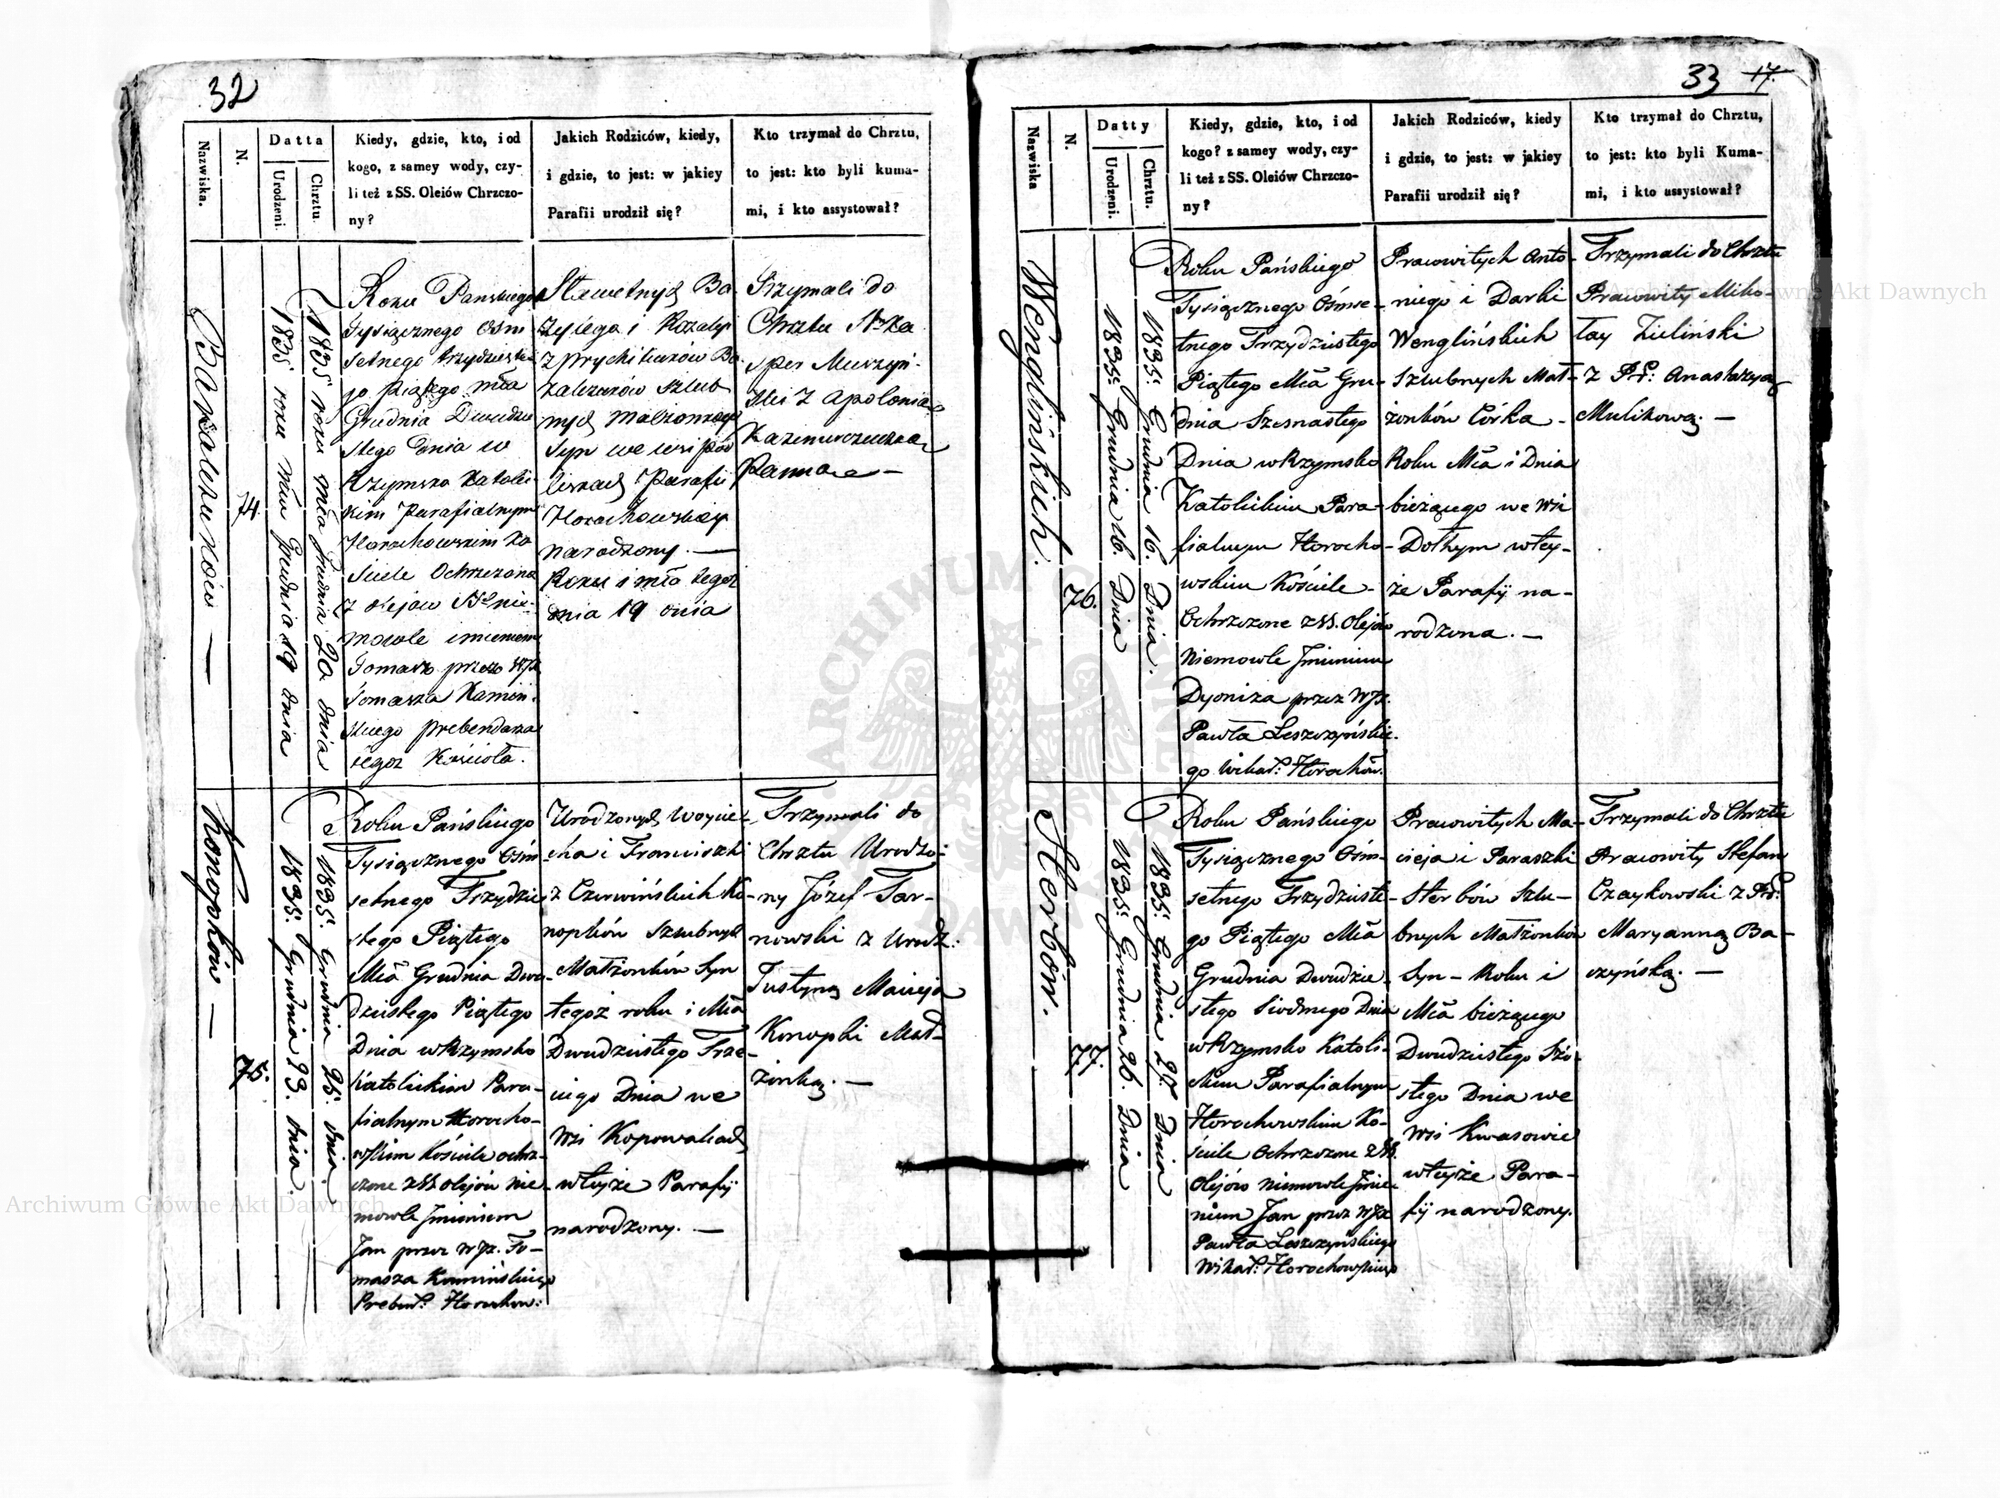 32
Nazwiska.
N.
Datta
Urodzeni.
Chrztu.
Kiedy, gdzie, kto, i od
kogo, z samey wody, czy-
li też z SS. Oleiów Chrzczo-
ny?
Jakich Rodziców, kiedy,
i gdzie, to jest: w jakiey
Parafii urodził się?
Kto trzymał do Chrztu,
to jest: kto byli kuma-
mi, i kto assystował?
74.
1835 roku Grudnia 19 dnia
1835 roku mca Grudnia 20 dnia
Roku Panskiego
tysiącznego osm
setnego trzydzieste
go piątego mca
Grudnia Dwudzie
stego Dnia w
Rzymsko Katolic
kim Parafialnym
Horochowskim Ko
sciele Ochrzczono
z olejow nie-
mowle imieniem
Tomasz przez WJX
Tomasza Kamiń-
skiego prebendarza
tegoz Kościoła.
Sławetnych Ba-
zylego i Rozalyi
z Ba-
szlub
nych Małzonków
Syn we wsi
Parafii
Horochowskiey
narodzony. —
Roku i mca tegoz
dnia 19 dnia
Trzymali do
Chrztu
z Apolonią
Kazimierczukową
Panną —
Konopków —
75.
1835. Grudnia 23. dnia.
1835. Grudnia 25. dnia.
Roku Pańskiego
Tysiącznego Ośm
setnego Trzydzie
stego Piątego
Mca Grudnia Dwu-
dziestego Piątego
Dnia w Rzymsko
Katolickim Para-
fialnym Horocho-
wskim Kościele ochrz-
czone z SS. olejów nie-
mowle Jmieniem
Jan przez WJX. To-
masza Kamińskiego
Prebend. Horochow:
Urodzonych Woycie-
cha i Franciszki
z Czerwińskich Ko-
nopków Szlubnych
Małżonków Syn
tegoż roku i Mca
Dwudziestego Trze-
ciego Dnia we
Wsi Kopowalcach
w teyże Parafij
narodzony. —
Trzymali do
Chrztu Urodzo-
ny Józef Tar-
nowski z Urodz:
Justyną Macieja
Konopki Mał-
żonką. —
33 17.
Nazwiska
N.
Datty
Urodzeni.
Chrztu.
Kiedy, gdzie, kto, i od
kogo? z samey wody, czy-
li też z SS. Oleiów Chrzczo-
ny?
Jakich Rodziców, kiedy
i gdzie, to jest: w jakiey
Parafii urodził się?
Kto trzymał do Chrztu,
to jest: kto byli Kuma-
mi, i kto assystował?
Wenglińskich.
76.
1835. Grudnia 16. Dnia
1835. Grudnia 16. Dnia.
Roku Pańskiego
Tysiącznego Ośmse-
tnego Trzydziestego
Piątego Mca Gru-
dnia Szesnastego
Dnia w Rzymsko
Katolickim Para-
fialnym Horocho-
wskim Kościele-
Ochrzczone z SS. Olejów
Niemowle Jmieniem
Dyoniza przez WJX.
Pawła Leszczyńskie-
go Wikar: Horochow.
Pracowitych Anto-
niego i Darki
Wenglińskich
Szlubnych Mał-
żonków Córka -
Roku Mca i Dnia
bieżącego we Wsi
Dołhym w tey-
że Parafij na-
rodzona. —
Trzymali do Chrztu
Pracowity Miko-
łay Zieliński
z Pr: Anastazyą
Mulikową. —
Sterbów.
77.
1835. Grudnia 26. Dnia
1835. Grudnia 27. Dnia
Roku Pańskiego
Tysiącznego Ośm-
setnego Trzydzieste
go Piątego Mca
Grudnia Dwudzie-
stego Siodmego Dnia
w Rzymsko Katoli-
ckim Parafialnym
Horochowskim Ko-
ściele Ochrzczone z SS.
Olejów niemowle Jmie
niem Jan przez WJX
Pawła Leszczyńskiego
Wikar: Horochowskiego
Pracowitych Ma-
cieja i Paraszki
Sterbów Szlu-
bnych Małżonków
Syn - Roku i
Mca bieżącego
Dwudziestego Szó-
stego Dnia we
Wsi Kwasowie
w teyże Para-
fij narodzony.
Trzymali do Chrztu
Pracowity Stefan
Czaykowski z Pr:
Maryanną Ba-
czyńską. —
Archiwum Główne Akt Dawnych
Archiwum Główne Akt Dawnych